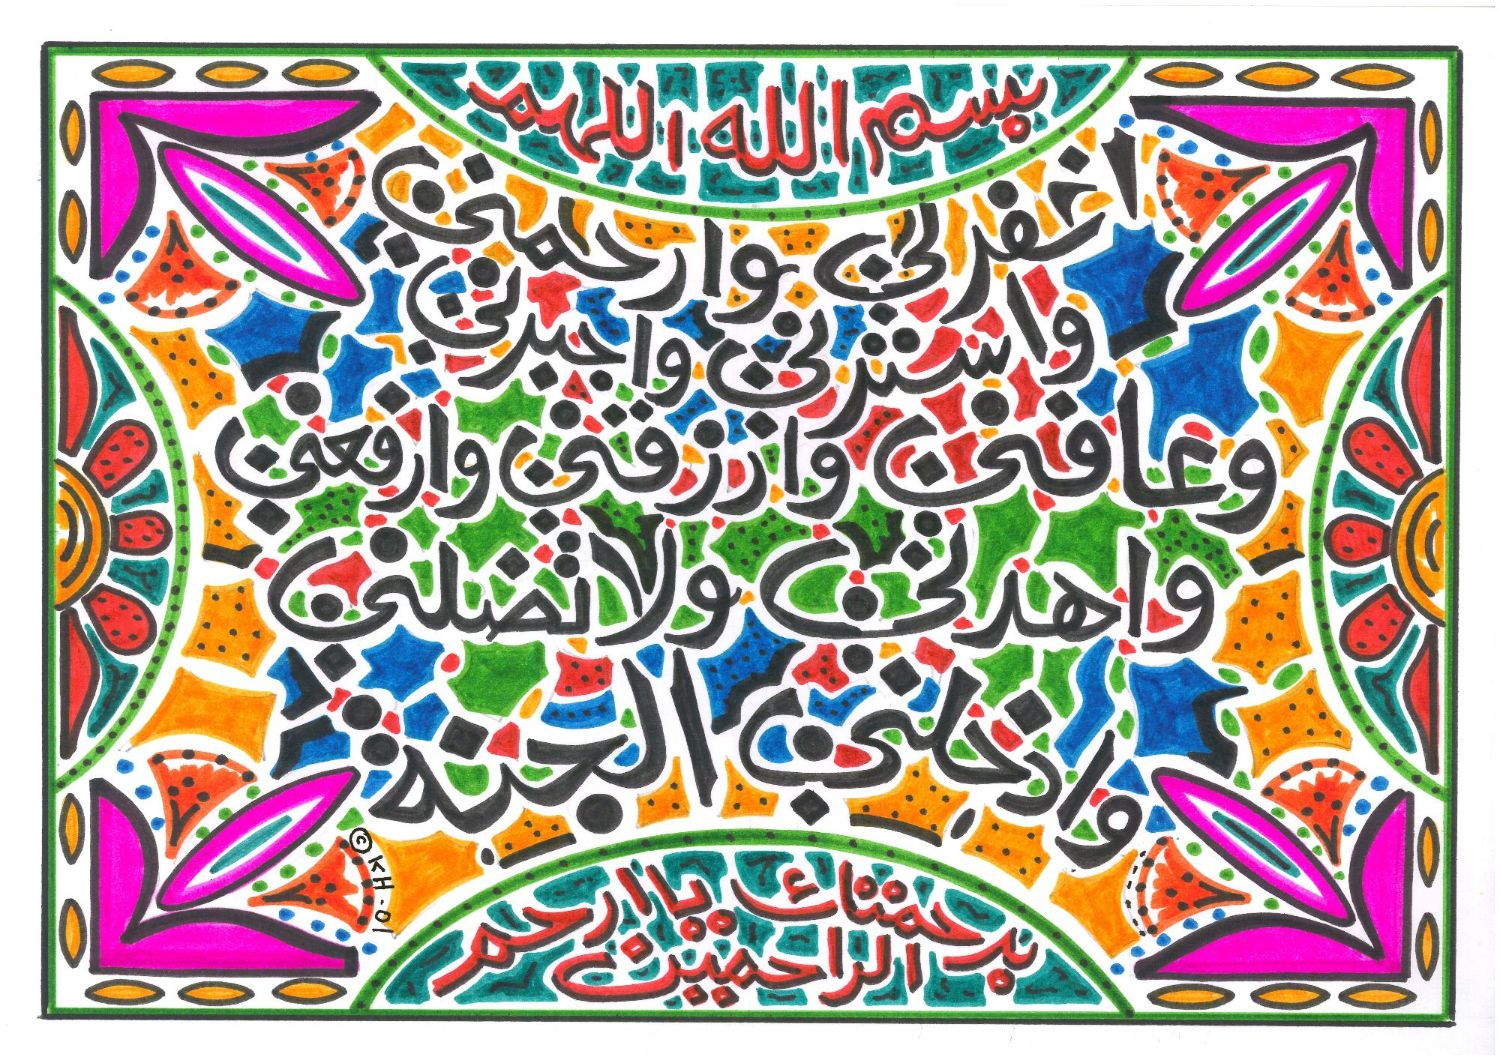 بسم الله اللهم
اغفرلي وارحمني
واسترني واجبرني
وعافني وارزقني وارفعني
واهدني ولا تضلني
وادخلني الجنة
برحمتك يا ارحم
الراحمين
© KH-01